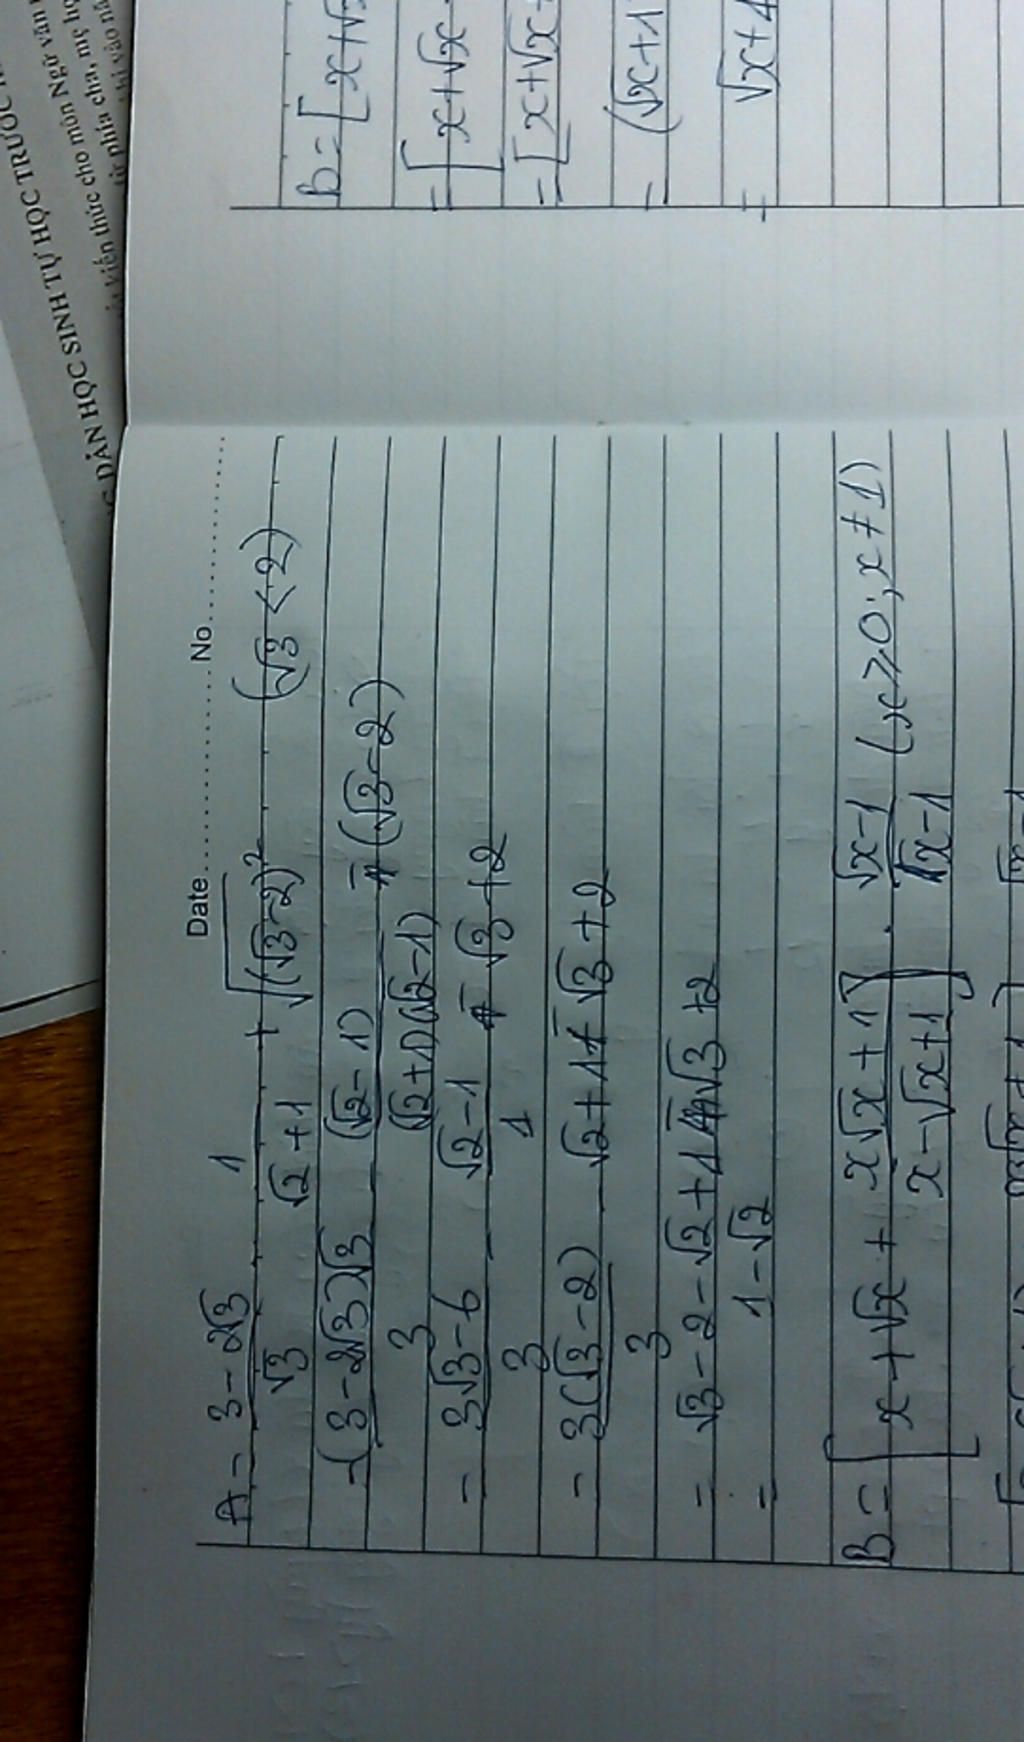 DẪN HỌC SINH TỰ HỌC TRƯỚC
kiến thức cho môn Ngữ văn
từ phía cha, mẹ
Date No
A = 3 - 2√3 / √3 - 1 / √2 + 1 + √(√3-2)² (√3 < 2)
= (3 - 2√3)√3 / 3 - (√2 - 1) / (√2+1)(√2-1) - (√3 - 2)
= 3√3 - 6 / 3 - √2 - 1 / 1 - √3 + 2
= 3(√3 - 2) / 3 - √2 + 1 - √3 + 2
= √3 - 2 - √2 + 1 - √3 + 2
= 1 - √2
B = [ x + √x + x√x + 1 / x - √x + 1 ] . √x - 1 / √x - 1 (x ≥ 0; x ≠ 1)
B = [ x + √x
= [ x + √x
= [ x + √x +
= (√x + 1
= √x + 1